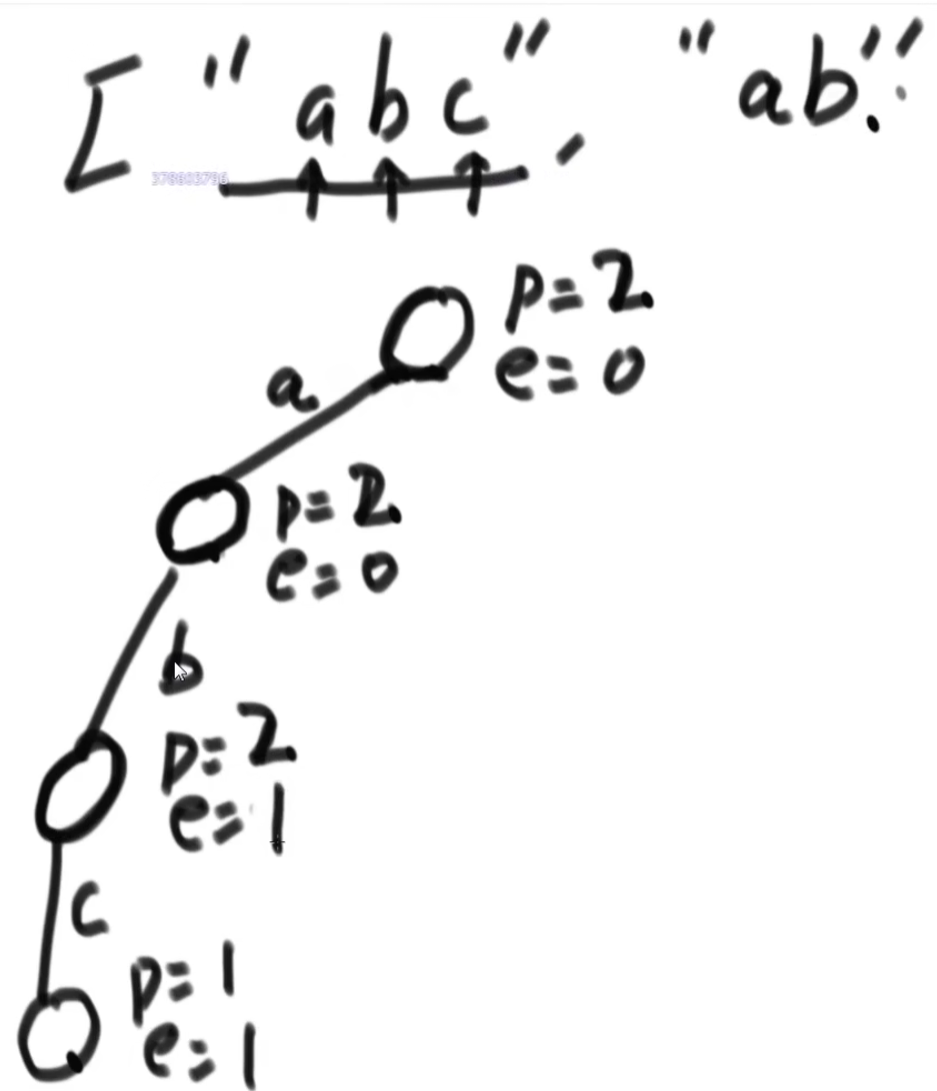 ["abc", "ab".
378603796
p=2
e=0
a
p=2
e=0
b
p=2
e=1
c
p=1
e=1